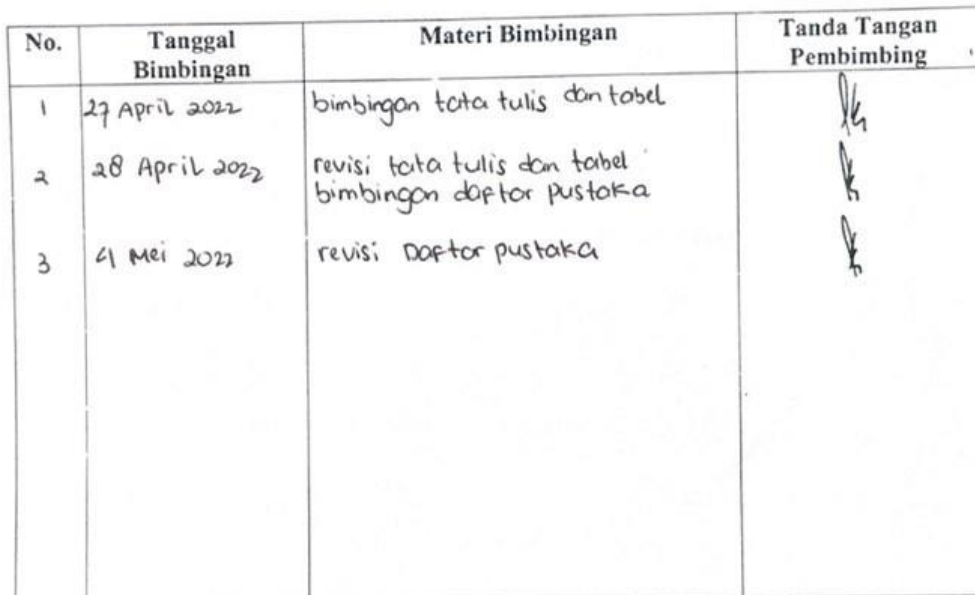 No. Tanggal Bimbingan Materi Bimbingan Tanda Tangan Pembimbing
1 27 April 2022 bimbingan tata tulis dan tabel
2 28 April 2022 revisi tata tulis dan tabel
bimbingan daftar pustaka
3 4 Mei 2022 revisi Daftar pustaka